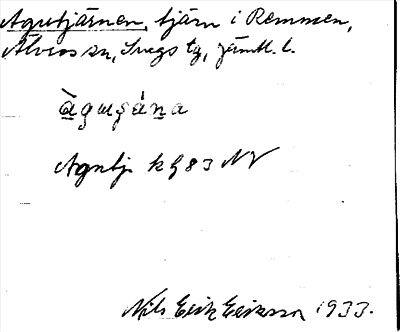 Agnstjärnen, tjärn i Remmen,
Älvros sn, Svegs tg, Jämtl. l.
Agntj. kg 83 NV
Nils Erik Eriksson 1933.